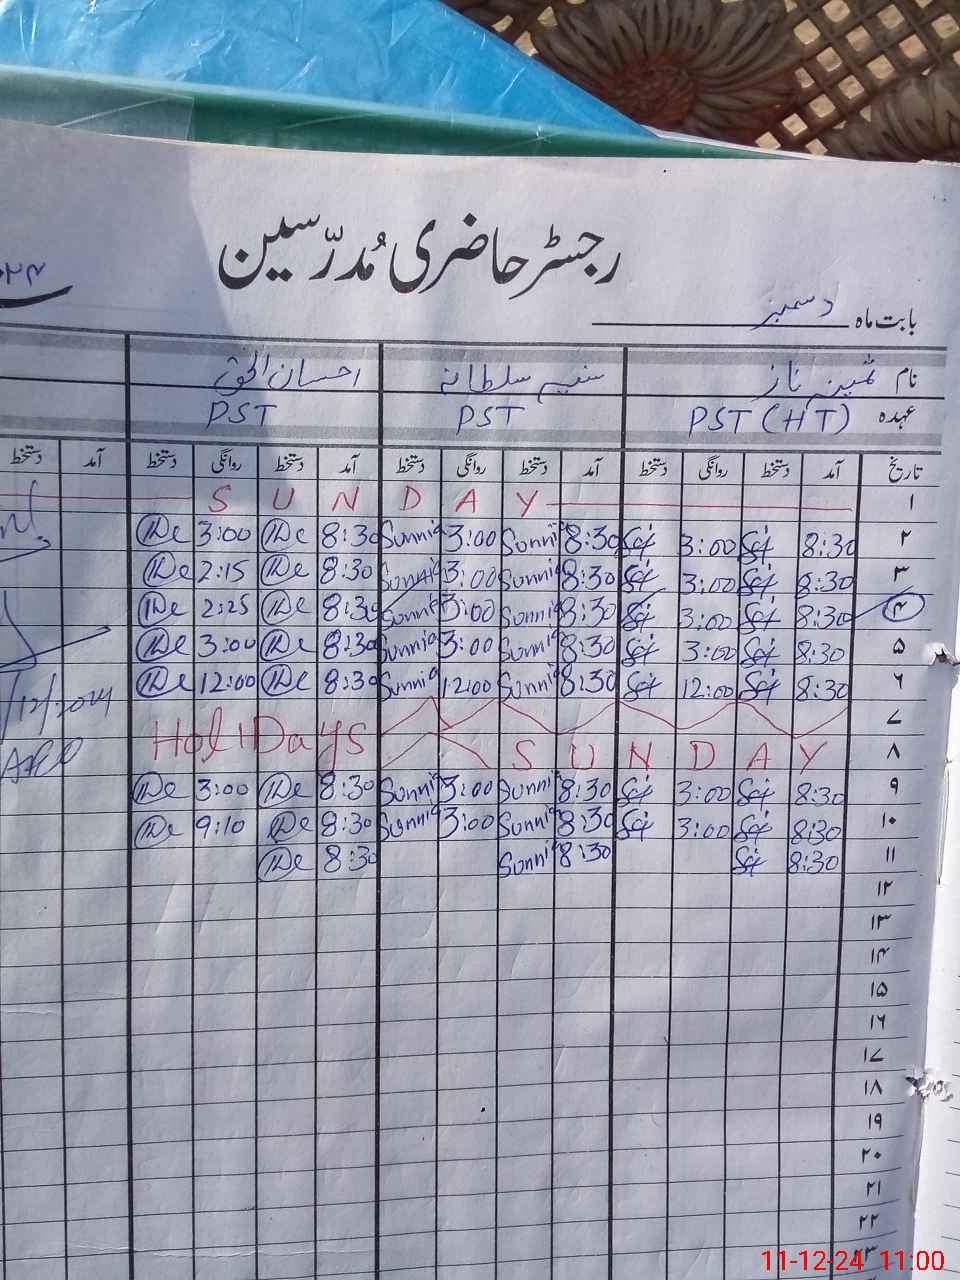 رجسٹر حاضری مُدرّسین
بابت ماہ دسمبر
نام ثمینہ ناز سلطانہ احسان الحق
عہدہ PST (HT) PST PST
تاریخ آمد دستخط روانگی دستخط آمد دستخط روانگی دستخط آمد دستخط روانگی دستخط آمد دستخط
۱ SUNDAY
۲ 8:30 3:00 8:30 Sunnia 3:00 Sunnia 8:30 3:00
۳ 8:30 3:00 8:30 Sunnia 3:00 Sunnia 8:30 2:15
۴ 8:30 3:00 8:30 Sunnia 3:00 Sunnia 8:30 2:25
۵ 8:30 3:00 8:30 Sunnia 3:00 Sunnia 8:30 3:00
۶ 8:30 12:00 8:30 Sunnia 12:00 Sunnia 8:30 12:00
۷ HoliDays
۸ SUNDAY
۹ 8:30 3:00 8:30 Sunnia 3:00 Sunnia 8:30 3:00
۱۰ 8:30 3:00 8:30 Sunnia 3:00 Sunnia 8:30 9:10
۱۱ 8:30 8:30 Sunnia 8:30
۱۲
۱۳
۱۴
۱۵
۱۶
۱۷
۱۸
۱۹
۲۰
۲۱
۲۲
۲۳
11-12-24 11:00